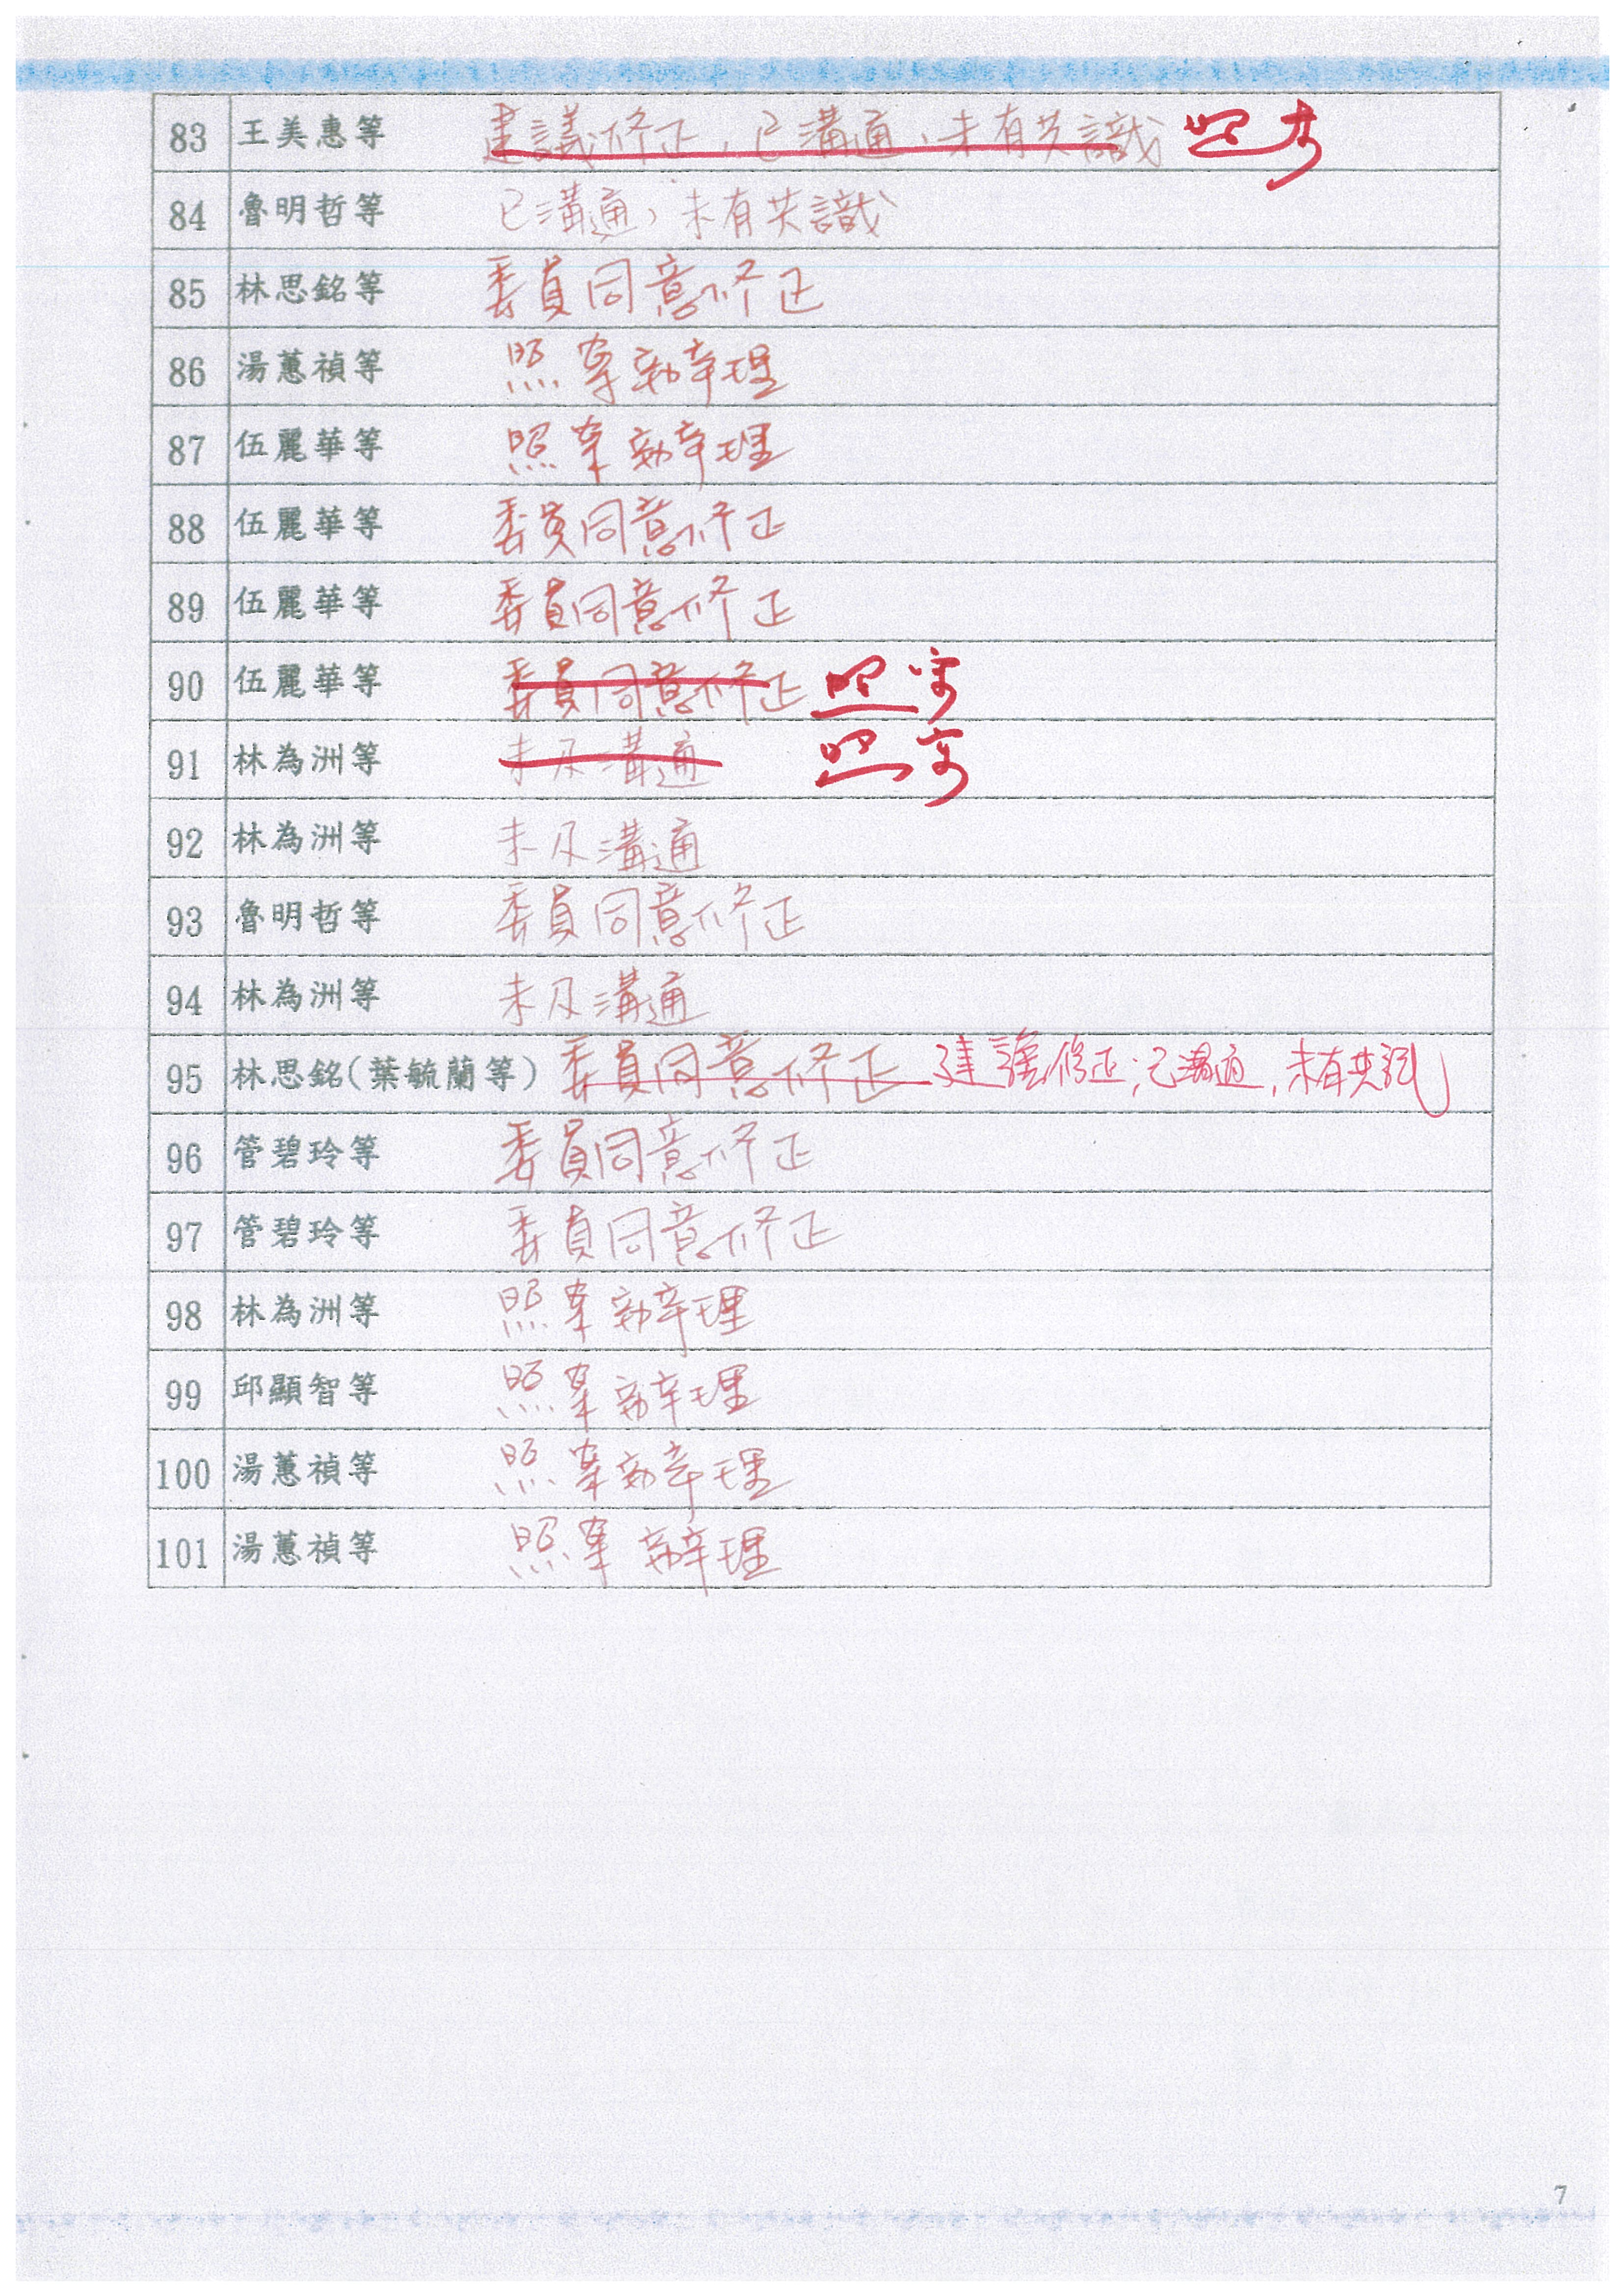 83 王美惠等 建議修正，已溝通，未有共識 照案
84 魯明哲等 已溝通，未有共識
85 林思銘等 委員同意修正
86 湯蕙禎等 照案辦理
87 伍麗華等 照案辦理
88 伍麗華等 委員同意修正
89 伍麗華等 委員同意修正
90 伍麗華等 委員同意修正 照案
91 林為洲等 未及溝通 照案
92 林為洲等 未及溝通
93 魯明哲等 委員同意修正
94 林為洲等 未及溝通
95 林思銘(葉毓蘭等) 委員同意修正 建議修正；已溝通，未有共識
96 管碧玲等 委員同意修正
97 管碧玲等 委員同意修正
98 林為洲等 照案辦理
99 邱顯智等 照案辦理
100 湯蕙禎等 照案辦理
101 湯蕙禎等 照案辦理
7